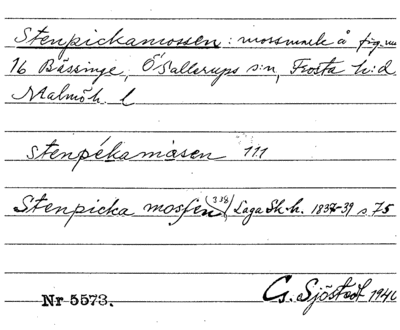 Stenpickamossen: mossmark å fig. nu
16 Bässinge, Ö Sallerups s:n, Frosta h:d.
Malmöh. l
stenpékamåsen 111
Stenpicka mossen (338) Laga Sk. h. 1837-39 s. 75
Nr 5573. G. Sjöstedt 1940